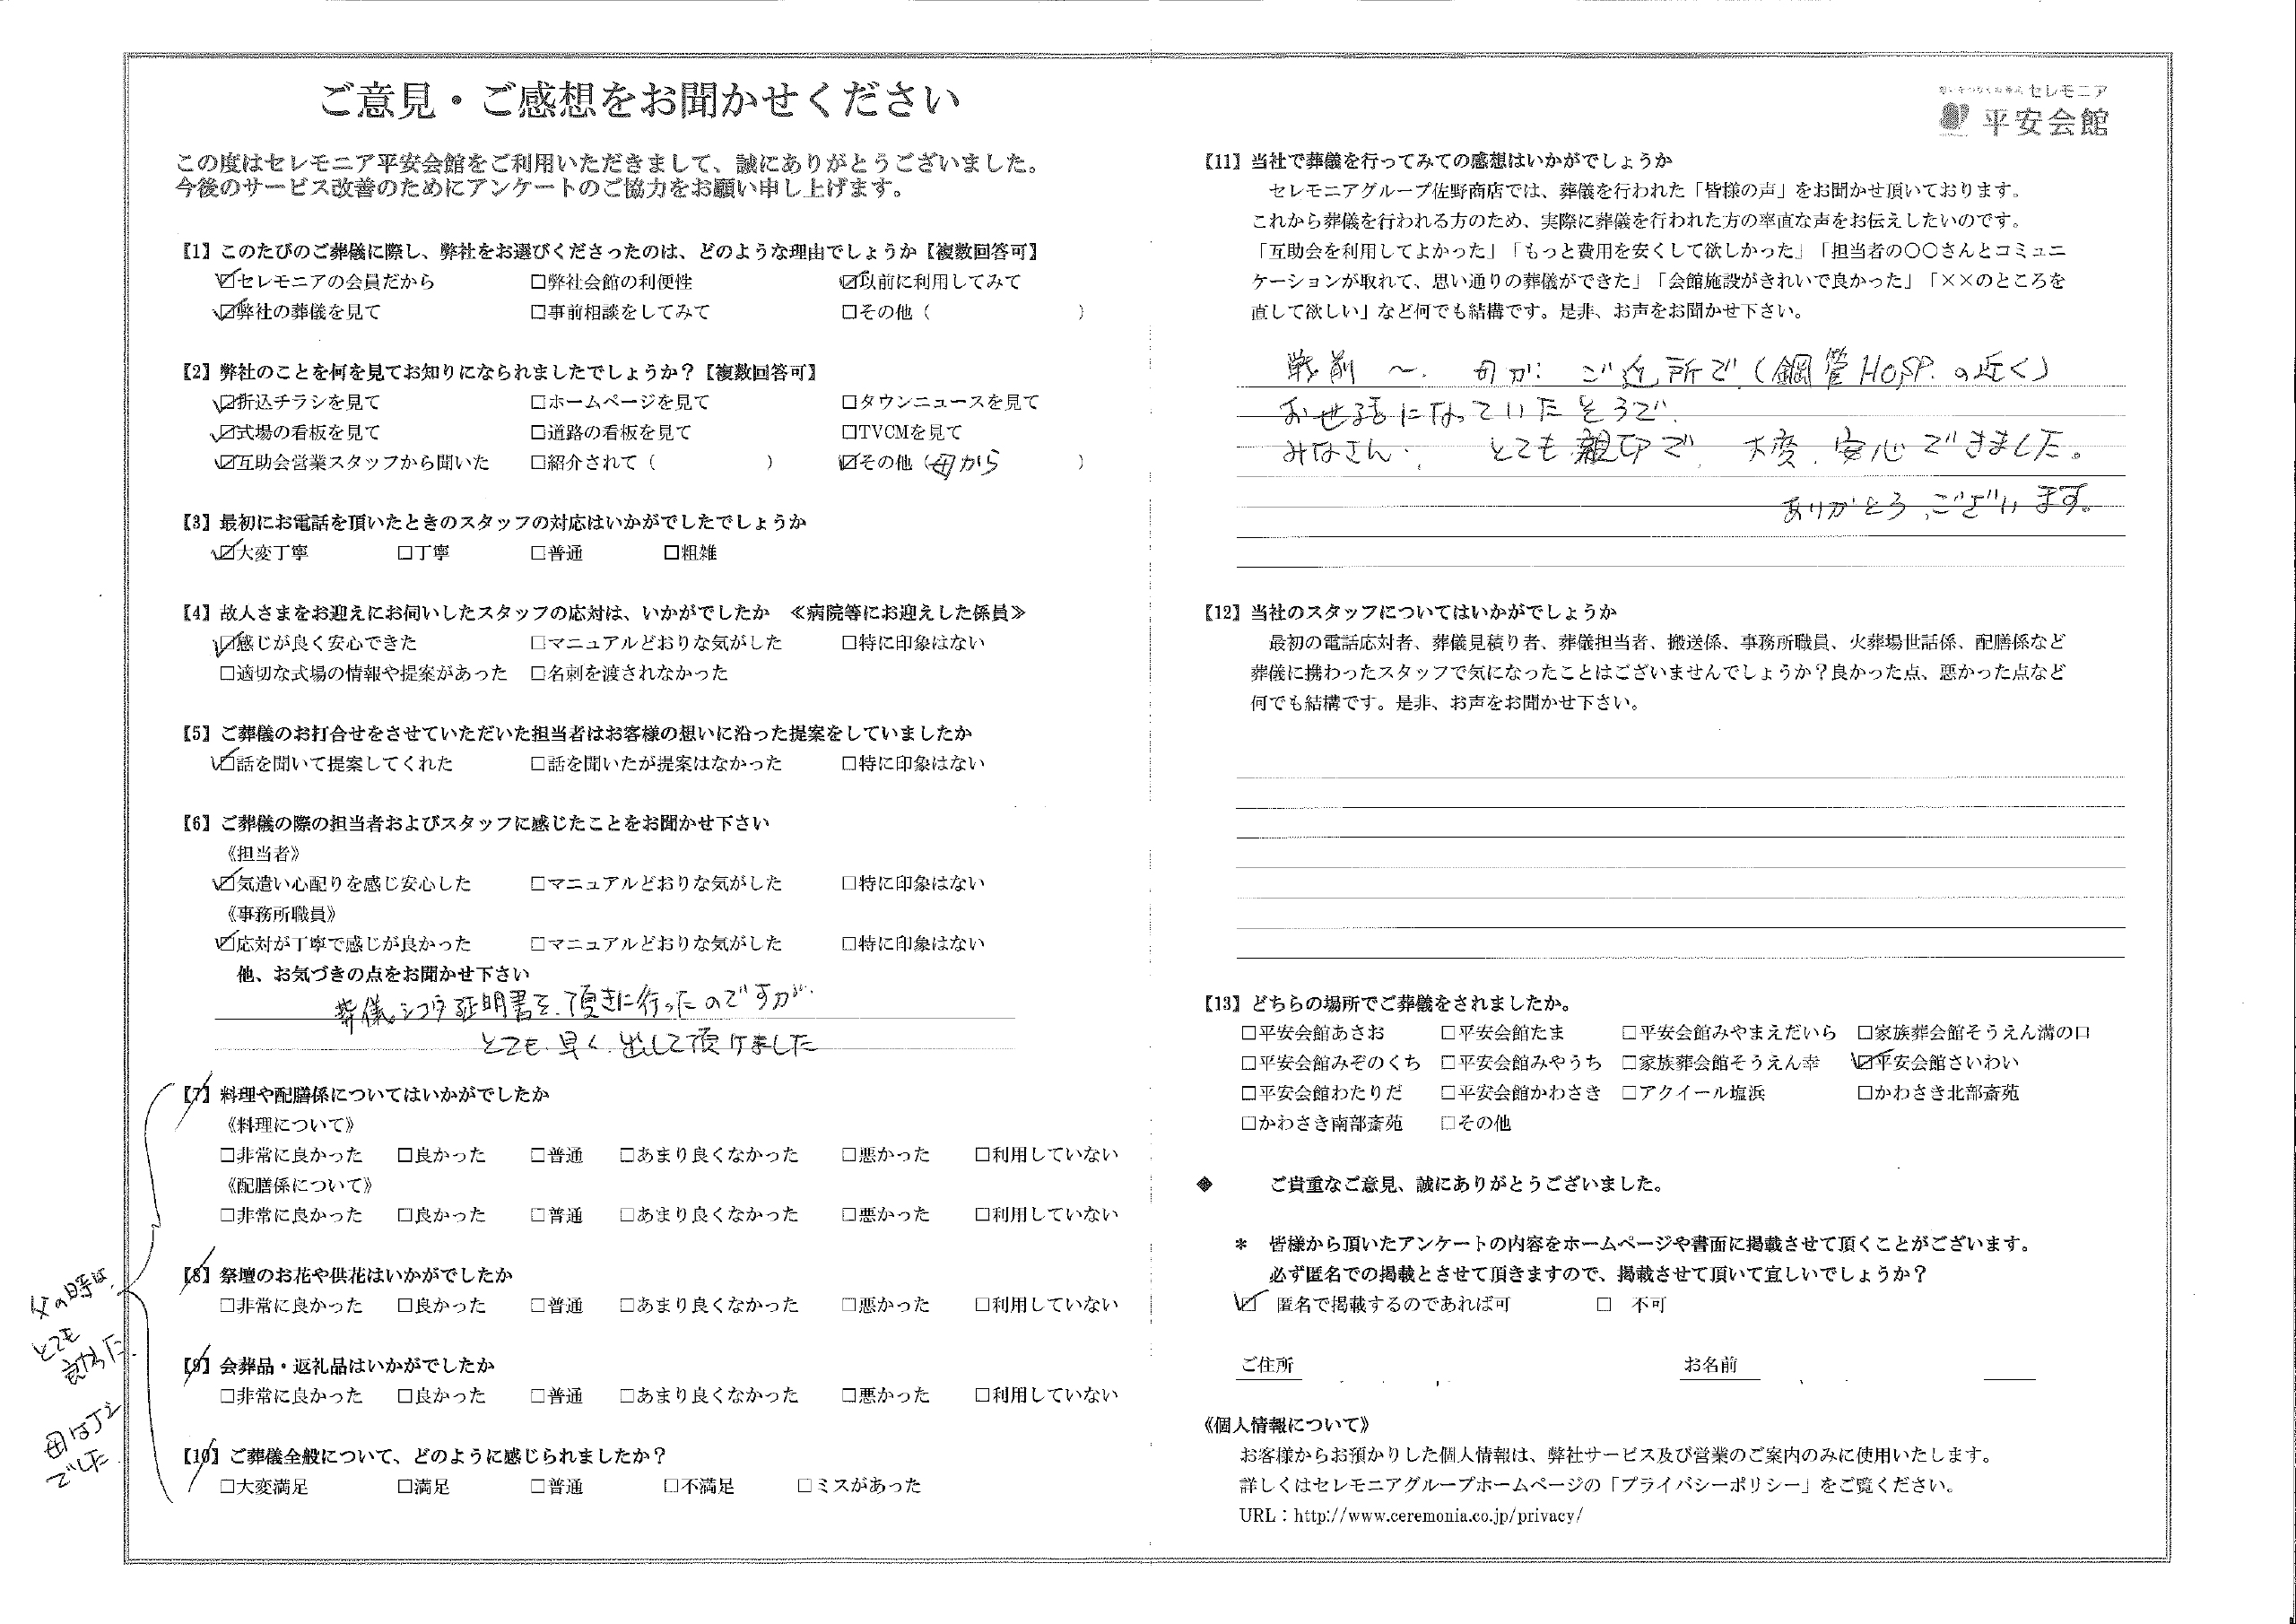 ご意見・ご感想をお聞かせください
この度はセレモニア平安会館をご利用いただきまして、誠にありがとうございました。
今後のサービス改善のためにアンケートのご協力をお願い申し上げます。
【1】このたびのご葬儀に際し、弊社をお選びくださったのは、どのような理由でしょうか【複数回答可】
☑セレモニアの会員だから □弊社会館の利便性 ☑以前に利用してみて
☑弊社の葬儀を見て □事前相談をしてみて □その他（ ）
【2】弊社のことを何を見てお知りになられましたでしょうか？【複数回答可】
☑折込チラシを見て □ホームページを見て □タウンニュースを見て
☑式場の看板を見て □道路の看板を見て □TVCMを見て
☑互助会営業スタッフから聞いた □紹介されて（ ） ☑その他（母から ）
【3】最初にお電話を頂いたときのスタッフの対応はいかがでしたでしょうか
☑大変丁寧 □丁寧 □普通 □粗雑
【4】故人さまをお迎えにお伺いしたスタッフの応対は、いかがでしたか ≪病院等にお迎えした係員≫
☑感じが良く安心できた □マニュアルどおりな気がした □特に印象はない
□適切な式場の情報や提案があった □名刺を渡されなかった
【5】ご葬儀のお打合せをさせていただいた担当者はお客様の想いに沿った提案をしていましたか
☑話を聞いて提案してくれた □話を聞いたが提案はなかった □特に印象はない
【6】ご葬儀の際の担当者およびスタッフに感じたことをお聞かせ下さい
《担当者》
☑気遣い心配りを感じ安心した □マニュアルどおりな気がした □特に印象はない
《事務所職員》
☑応対が丁寧で感じが良かった □マニュアルどおりな気がした □特に印象はない
他、お気づきの点をお聞かせ下さい
葬儀 証明書を、頂きに行ったのですが、
とても早く出して頂けました
【7】料理や配膳係についてはいかがでしたか
《料理について》
□非常に良かった □良かった □普通 □あまり良くなかった □悪かった □利用していない
《配膳係について》
□非常に良かった □良かった □普通 □あまり良くなかった □悪かった □利用していない
【8】祭壇のお花や供花はいかがでしたか
□非常に良かった □良かった □普通 □あまり良くなかった □悪かった □利用していない
【9】会葬品・返礼品はいかがでしたか
□非常に良かった □良かった □普通 □あまり良くなかった □悪かった □利用していない
【10】ご葬儀全般について、どのように感じられましたか？
□大変満足 □満足 □普通 □不満足 □ミスがあった
父の時は、
とても
良かった.
母は
でした
セレモニア
平安会館
【11】当社で葬儀を行ってみての感想はいかがでしょうか
セレモニアグループ佐野商店では、葬儀を行われた「皆様の声」をお聞かせ頂いております。
これから葬儀を行われる方のため、実際に葬儀を行われた方の率直な声をお伝えしたいのです。
「互助会を利用してよかった」「もっと費用を安くして欲しかった」「担当者の〇〇さんとコミュニ
ケーションが取れて、思い通りの葬儀ができた」「会館施設がきれいで良かった」「××のところを
直して欲しい」など何でも結構です。是非、お声をお聞かせ下さい。
戦前 〜. 母が ご近所で（鋼管HOSP.の近く）
お世話になっていたそうで、
みなさん、 とても親切で、 大変、安心できました。
ありがとうございます。
【12】当社のスタッフについてはいかがでしょうか
最初の電話応対者、葬儀見積り者、葬儀担当者、搬送係、事務所職員、火葬場世話係、配膳係など
葬儀に携わったスタッフで気になったことはございませんでしょうか？良かった点、悪かった点など
何でも結構です。是非、お声をお聞かせ下さい。
【13】どちらの場所でご葬儀をされましたか。
□平安会館あさお □平安会館たま □平安会館みやまえだいら □家族葬会館そうえん溝の口
□平安会館みぞのくち □平安会館みやうち □家族葬会館そうえん幸 ☑平安会館さいわい
□平安会館わたりだ □平安会館かわさき □アクイール塩浜 □かわさき北部斎苑
□かわさき南部斎苑 □その他
◆ ご貴重なご意見、誠にありがとうございました。
＊ 皆様から頂いたアンケートの内容をホームページや書面に掲載させて頂くことがございます。
必ず匿名での掲載とさせて頂きますので、掲載させて頂いて宜しいでしょうか？
☑ 匿名で掲載するのであれば可 □ 不可
ご住所 お名前
《個人情報について》
お客様からお預かりした個人情報は、弊社サービス及び営業のご案内のみに使用いたします。
詳しくはセレモニアグループホームページの「プライバシーポリシー」をご覧ください。
URL：http://www.ceremonia.co.jp/privacy/